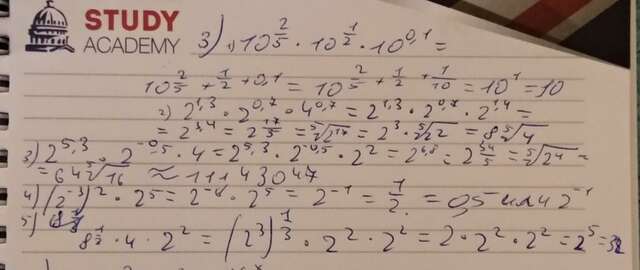 STUDY
ACADEMY
3) 1) 10^(2/5) · 10^(1/2) · 10^(0,1) =
10^(2/5 + 1/2 + 0,1) = 10^(2/5 + 1/2 + 1/10) = 10^1 = 10
2) 2^(1,3) · 2^(0,7) · 4^(0,7) = 2^(1,3) · 2^(0,7) · 2^(1,4) =
= 2^(3,4) = 2^(17/5) = ⁵√(2^17) = 2^3 · ⁵√(2^2) = 8 ⁵√4
3) 2^(5,3) · 2^(-0,5) · 4 = 2^(5,3) · 2^(-0,5) · 2^2 = 2^(6,8) = 2^(34/5) = ⁵√(2^4) =
= 64 ⁵√16 ≈ 111 430 47
4) (2^(-3))^2 · 2^5 = 2^(-4) · 2^5 = 2^(-1) = 1/2 = 0,5 или 2^(-1)
5)
8^(1/2) · 4 · 2^2 = (2^3)^(1/3) · 2^2 · 2^2 = 2 · 2^2 · 2^2 = 2^5 = 32